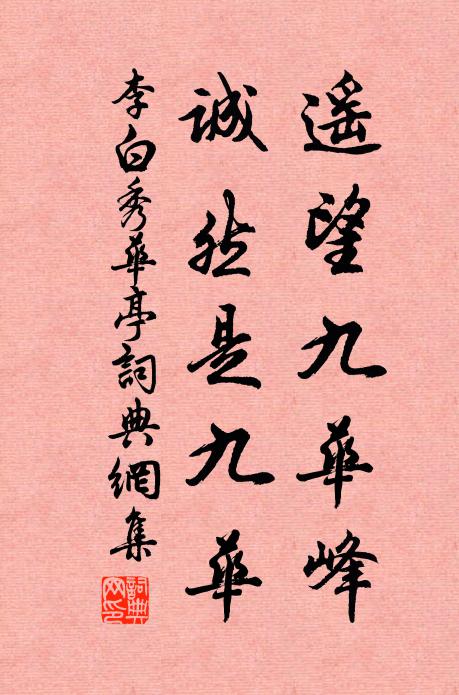 遥望九華峰
誠然是九華
李白秀華亭詞典網集
詞典网印